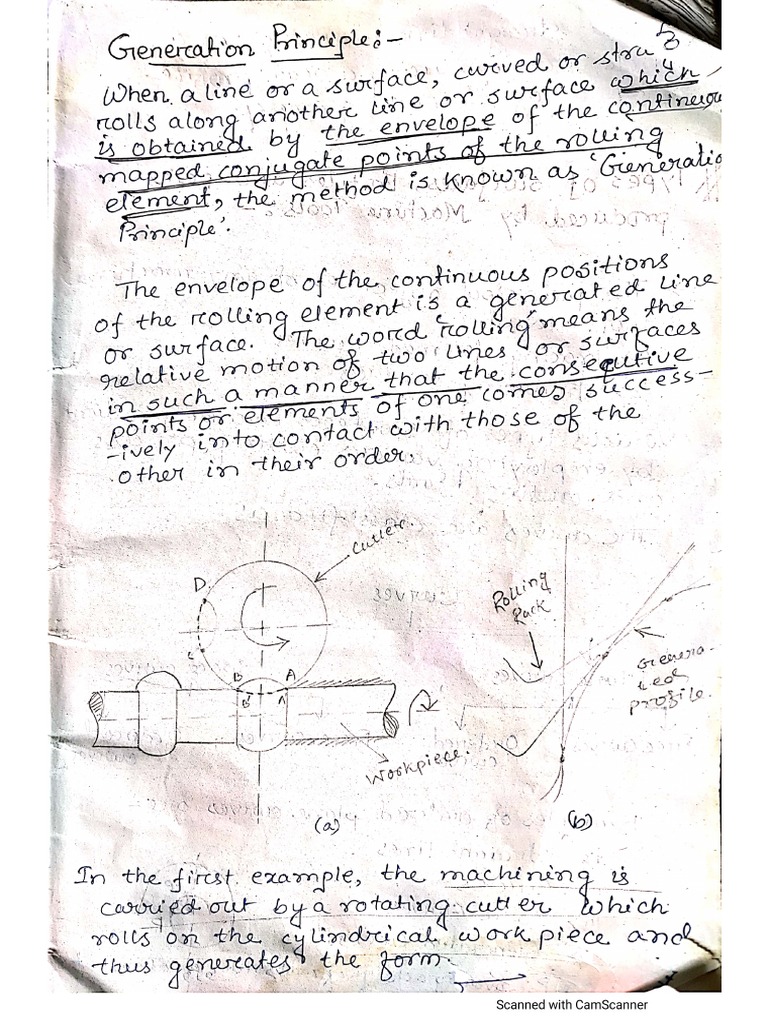 Generation Principle:-
When a line or a surface, curved or
rolls along another line or surface which
is obtained by the envelope of the continuous
mapped conjugate points of the rolling
element, the method is known as 'Generation
Principle'.
The envelope of the continuous positions
of the rolling element is a generated line
or surface. The word 'rolling' means the
relative motion of two lines or surfaces
in such a manner that the consecutive
points or elements of one comes success-
-ively into contact with those of the
other in their order.
Cutter
D
C
B
A
B'
A'
Workpiece.
(a)
Rolling
Rack
Genera-
ted
profile.
(b)
In the first example, the machining is
carried out by a rotating cutter which
rolls on the cylindrical workpiece and
thus generates the form.
Scanned with CamScanner